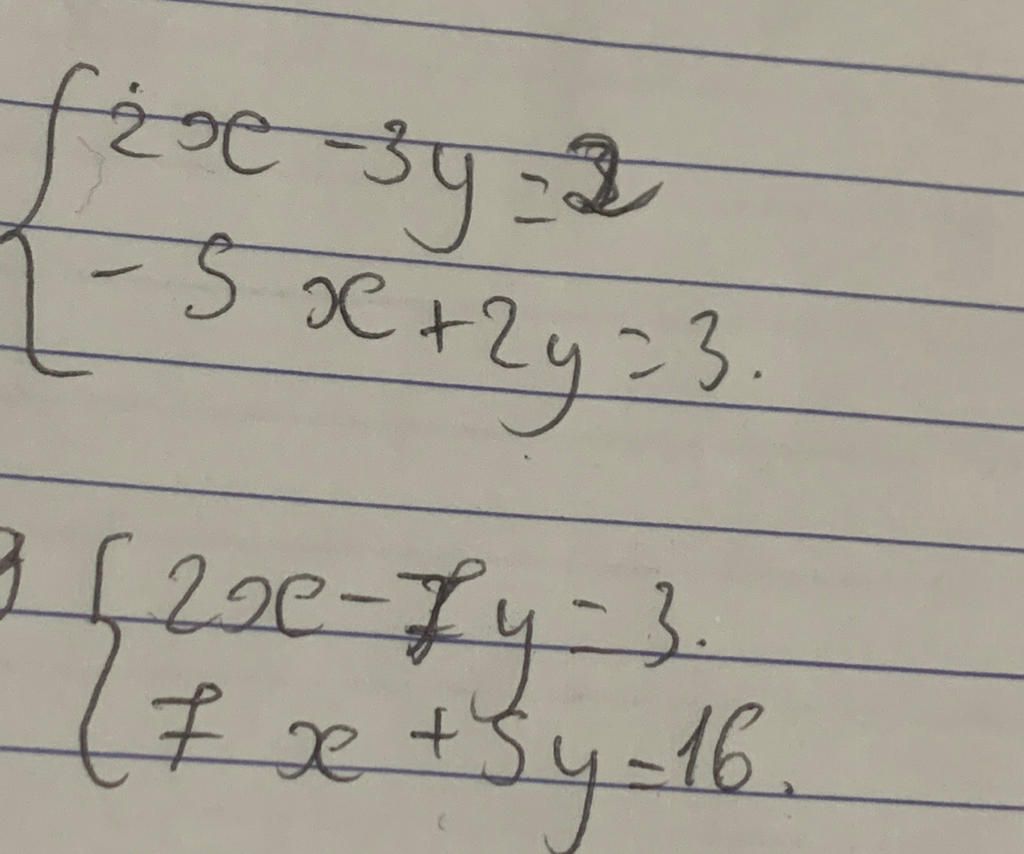 2x - 3y = 2
- 5x + 2y = 3.
2x - 7y = 3.
7x + 5y = 16.